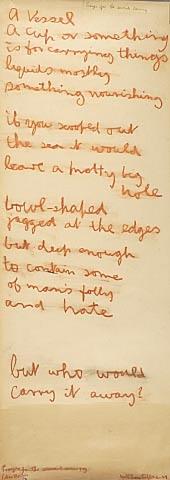 A Vessel
A cup or something
is for carrying things
liquids mostly
something nourishing
if you scooped out
the sea it would
leave a pretty big
hole
bowl-shaped
jagged at the edges
but deep enough
to contain some
of man's folly
and hate
but who would
carry it away?
for the